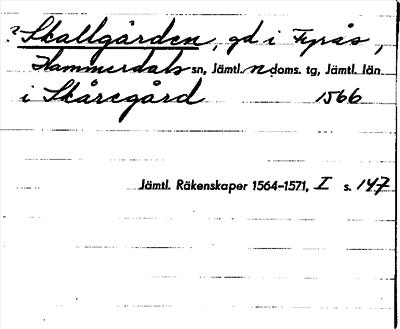 ? Skallgården, gd i Fyrås,
Hammerdals sn, Jämtl. n doms. tg, Jämtl. län
i Skåregård 1566
Jämtl. Räkenskaper 1564-1571, I s. 147